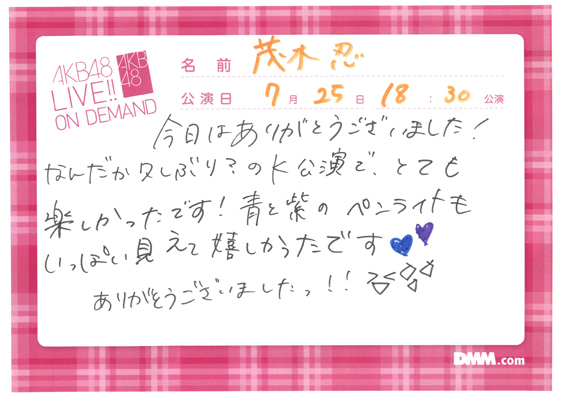 AKB48
LIVE!!
ON DEMAND
AKB
48
名前 茂木忍
公演日 7月25日 18:30公演
今日はありがとうございました!
なんだか久しぶり?のK公演で、とても
楽しかったです!青と紫のペンライトも
いっぱい見えて嬉しかったです
ありがとうございましたっ!!
DMM.com